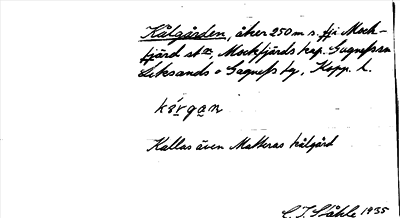 Kålgården, åker 250 m s. fr. Mock-
fjärd stn, Mockfjärds kap. Gagnefs sn
Leksands o Gagnefs tg, Kopp. l.
kǻrga̱n
Kallas även Matteras kålgård
C. I. Ståhle 1935